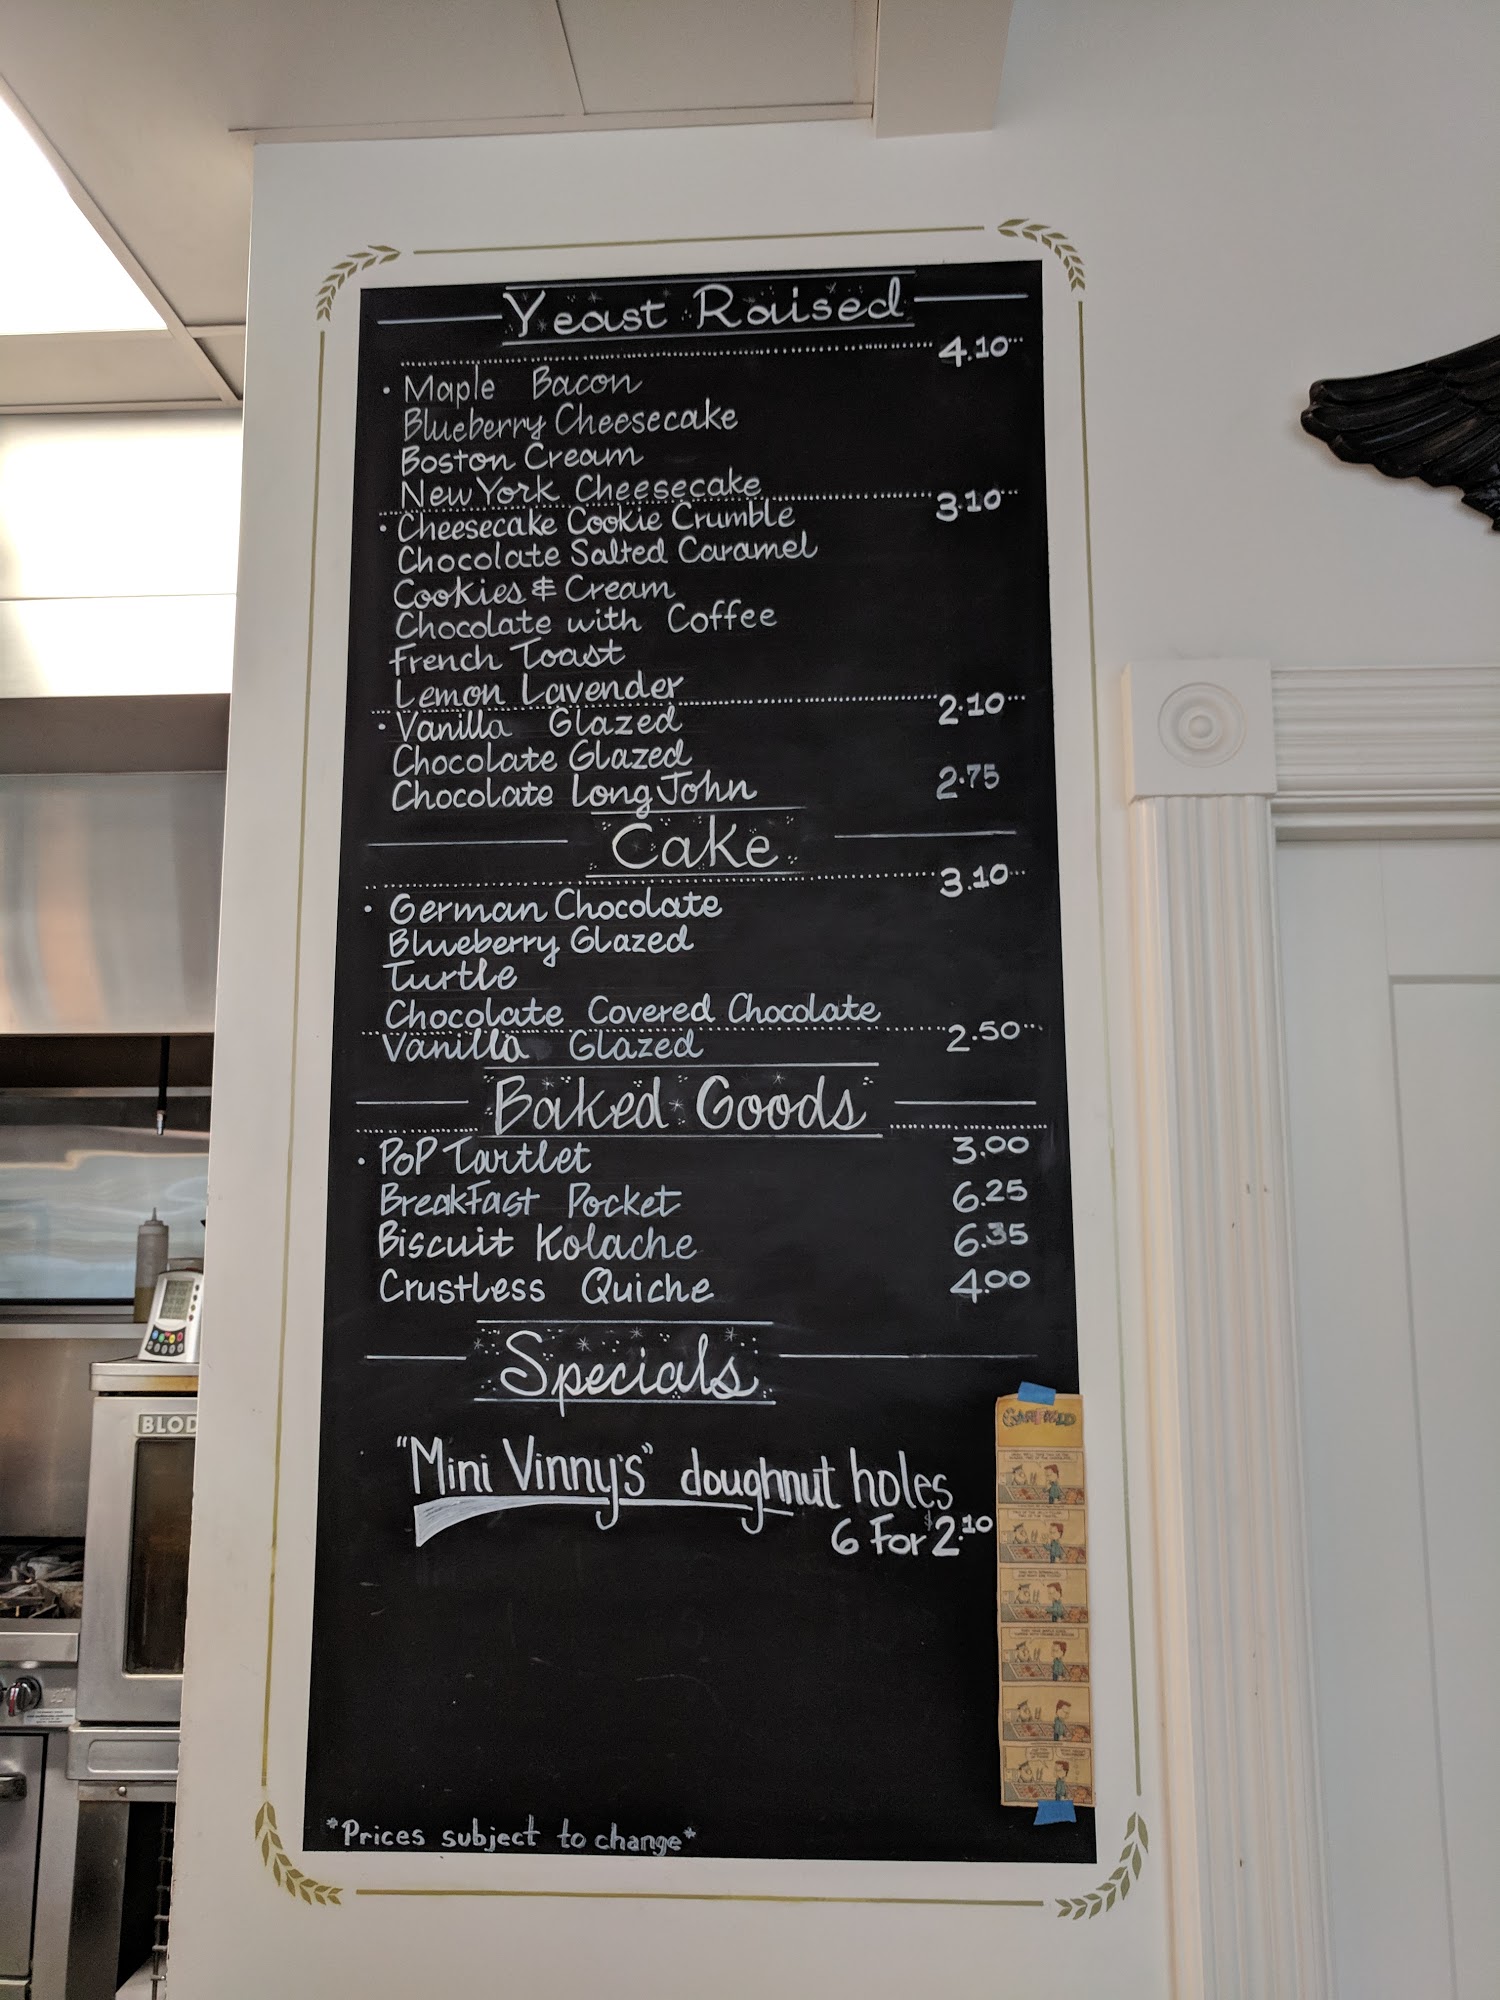 Yeast Raised
4.10
• Maple Bacon
Blueberry Cheesecake
Boston Cream
New York Cheesecake
3.10
• Cheesecake Cookie Crumble
Chocolate Salted Caramel
Cookies & Cream
Chocolate with Coffee
French Toast
Lemon Lavender
2.10
• Vanilla Glazed
Chocolate Glazed
Chocolate Long John 2.75
Cake
3.10
• German Chocolate
Blueberry Glazed
Turtle
Chocolate Covered Chocolate
Vanilla Glazed 2.50
Baked Goods
• PoP Tartlet 3.00
BreakFast Pocket 6.25
Biscuit Kolache 6.35
Crustless Quiche 4.00
Specials
"Mini Vinny's" doughnut holes
6 For $2.10
GARFIELD
*Prices subject to change*
BLOD